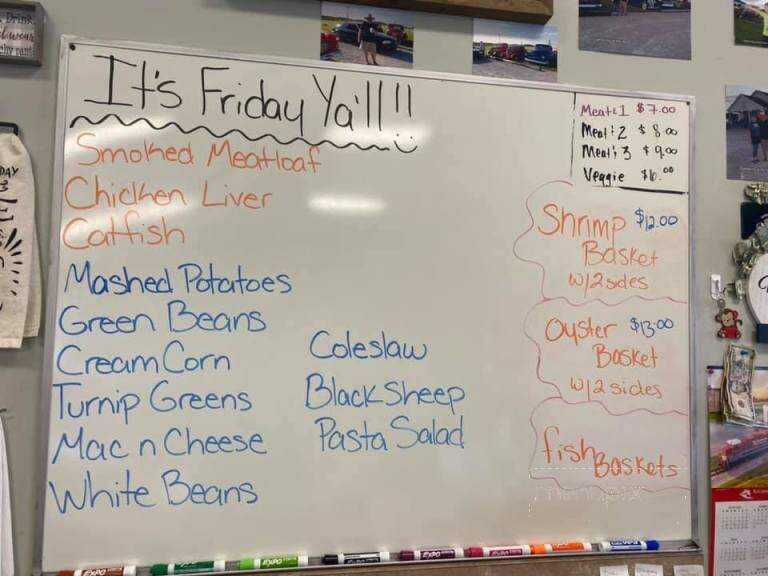 It's Friday Ya'll!!
Smoked Meatloaf
Chicken Liver
Catfish
Mashed Potatoes
Green Beans
Cream Corn
Turnip Greens
Mac n Cheese
White Beans
Coleslaw
Black Sheep
Pasta Salad
Meat & 1 $7.00
Meat & 2 $8.00
Meat & 3 $9.00
Veggie
Shrimp $12.00
Basket
w/2 sides
Oyster $13.00
Basket
w/2 sides
fish Baskets
menupix
Drink
EXPO
EXPO
EXPO
EXPO
EXPO
EXPO